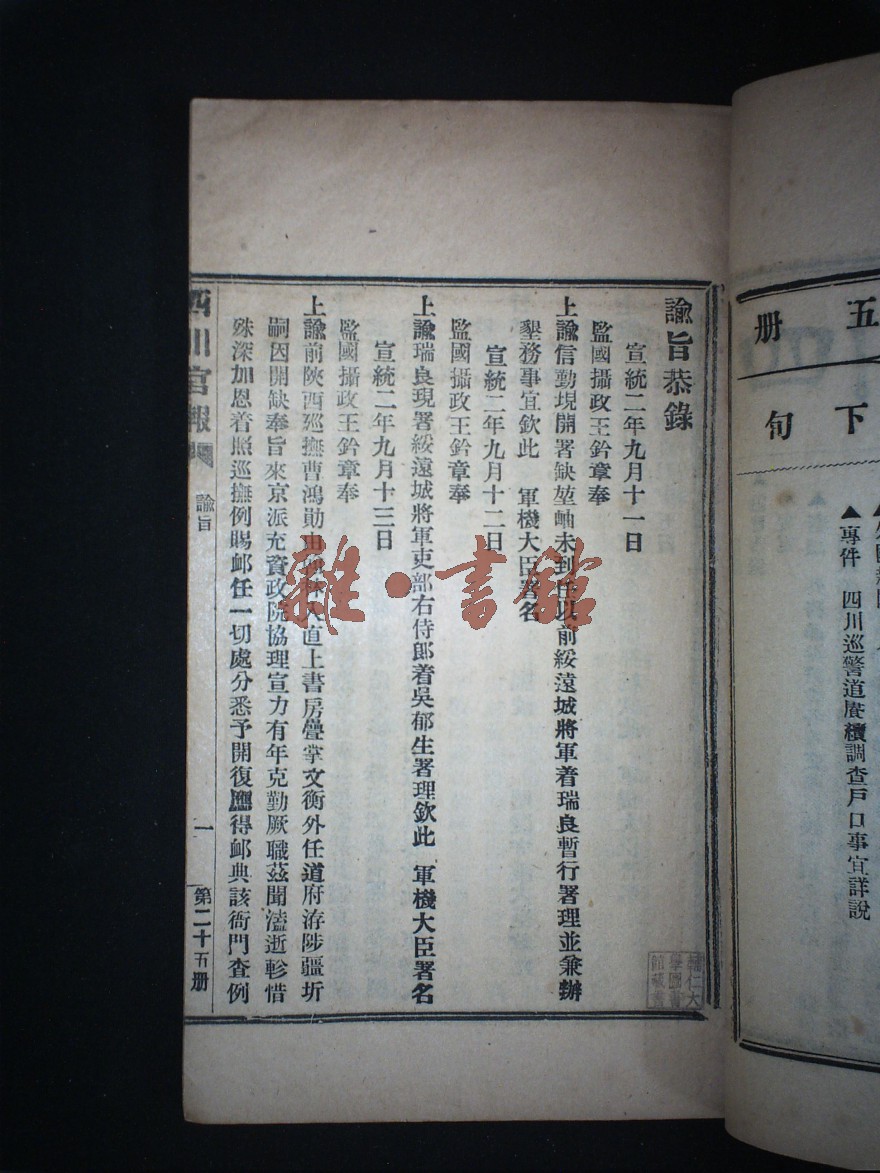 五
册
下
句
▲專件　四川巡警道賡續調查戶口事宜詳說
諭旨恭錄
宣統二年九月十一日
監國攝政王鈐章奉
上諭信勤現開署缺堃岫未到任以前綏遠城將軍着瑞良暫行署理並兼辦
墾務事宜欽此　軍機大臣署名
宣統二年九月十二日
監國攝政王鈐章奉
上諭瑞良現署綏遠城將軍吏部右侍郎着吳郁生署理欽此　軍機大臣署名
宣統二年九月十三日
監國攝政王鈐章奉
上諭前陝西巡撫曹鴻勛由入直上書房疊掌文衡外任道府洊陟疆圻
嗣因開缺奉旨來京派充資政院協理宣力有年克勤厥職茲聞溘逝軫惜
殊深加恩着照巡撫例賜卹任一切處分悉予開復應得卹典該衙門查例
四川官報
諭旨
一
第二十五册
雜·書館
輔仁大
學圖書
館藏書